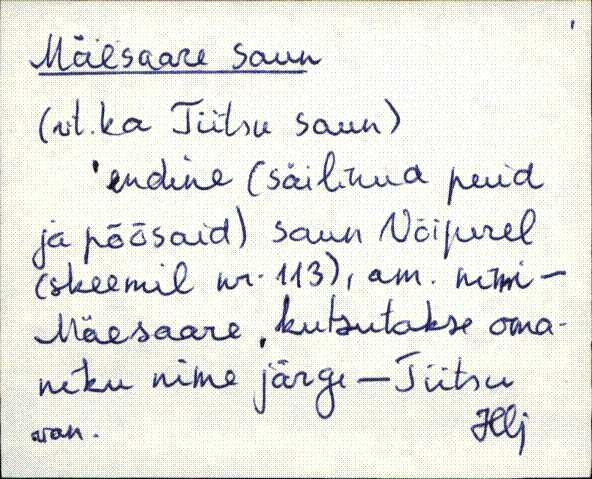 Mäesaare saun
(vt. ka Tiitsu saun)
'endine (säilinud puid
ja põõsaid) saun Võiperel
(skeemil nr. 113), am. nimi –
Mäesaare, kutsutakse oma-
niku nime järgi – Tiitsu